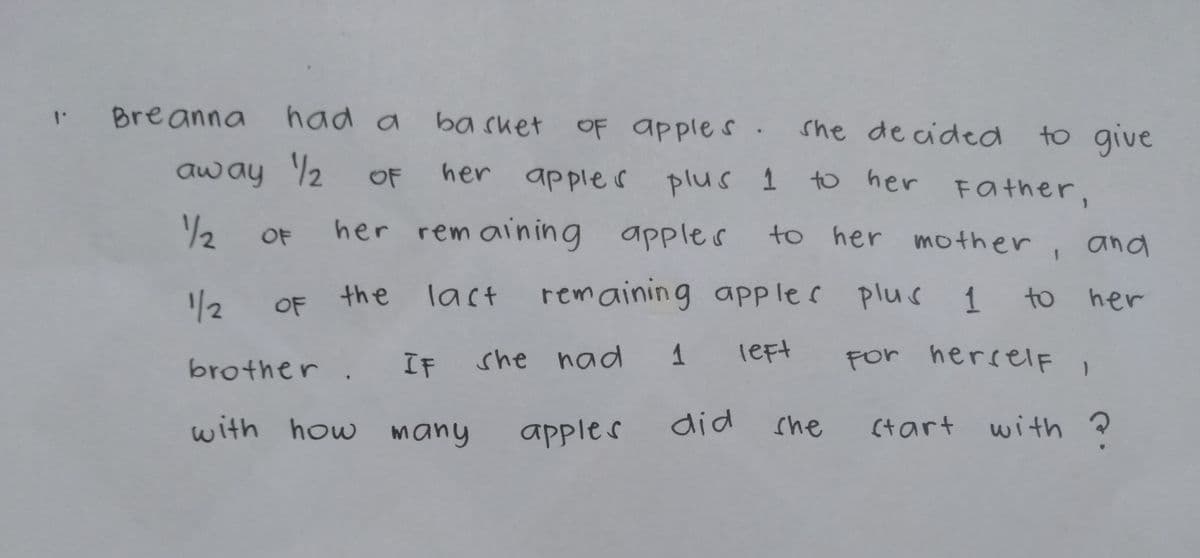 1. Breanna had a basket of apples. she decided to give
away 1/2 of her apples plus 1 to her Father,
1/2 of her remaining apples to her mother, and
1/2 of the last remaining apples plus 1 to her
brother. If she had 1 left for herself,
with how many apples did she start with?